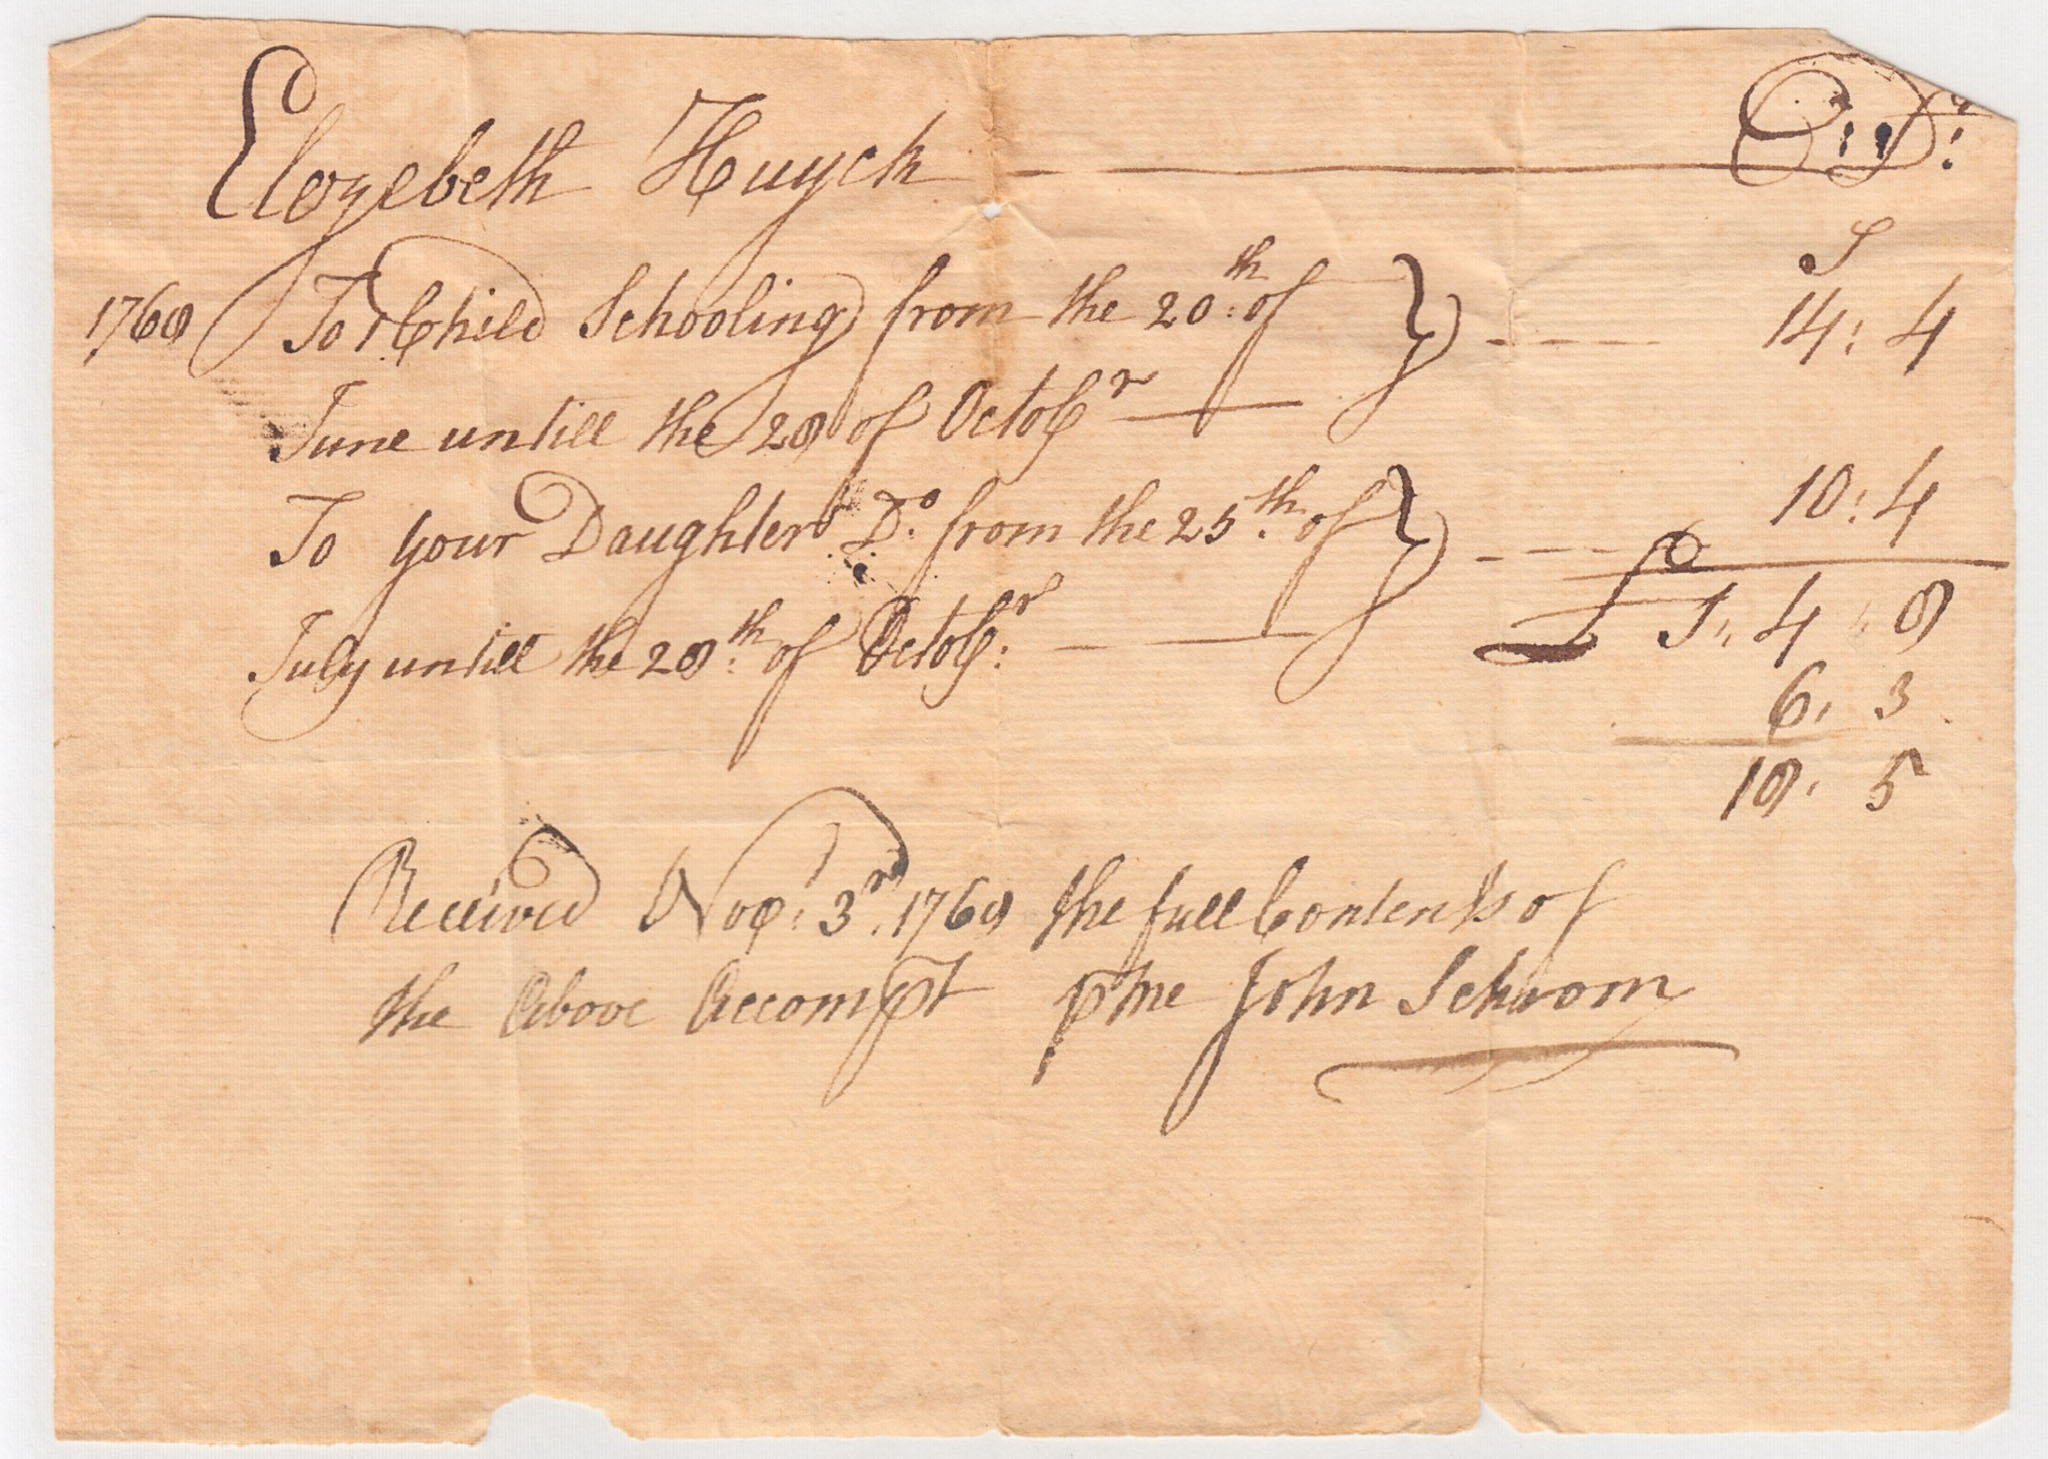 Elezebeth Huyck — Dr.
S
1768 To 1 Child Schooling from the 20th of } - - - - 14: 4
June untill the 28 of Octobr —
To your Daughter Do. from the 25th of } - - - 10: 4
July untill the 28th of Octobr. — —
£ 1,, 4 ,, 8
6, 3
18, 5
Received Nov. 3r. 1768 the full Contents of
the Above Accompt pr me John Schroom